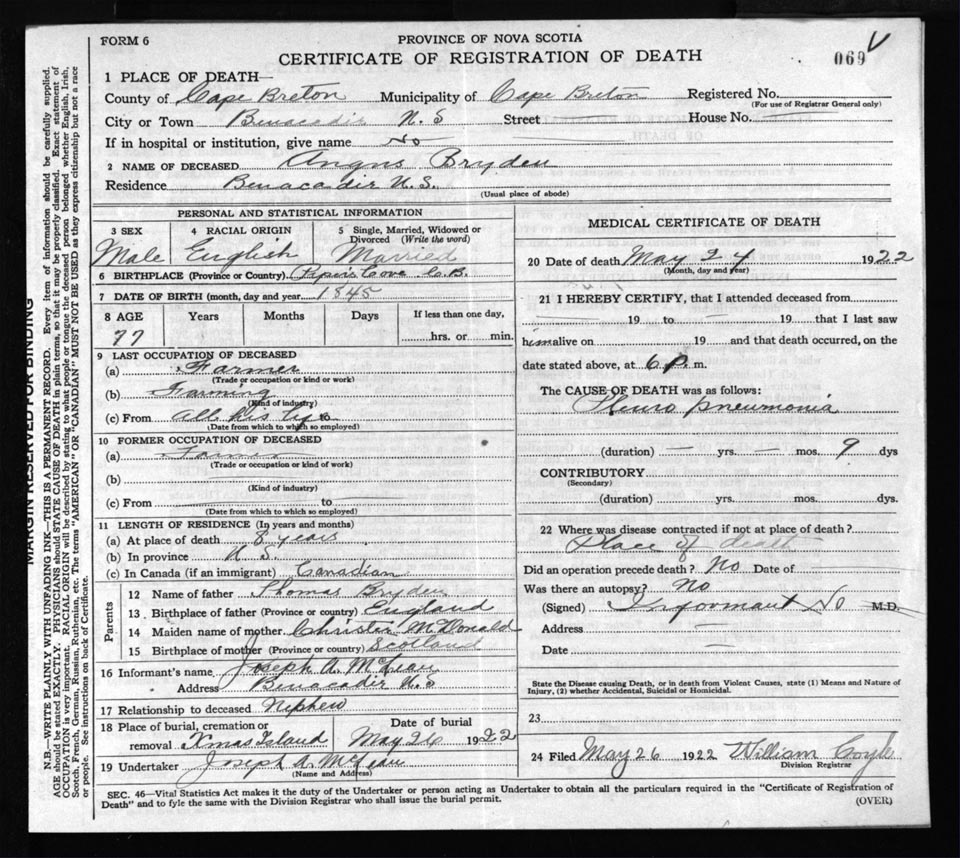 FORM 6
PROVINCE OF NOVA SCOTIA
CERTIFICATE OF REGISTRATION OF DEATH
069
1 PLACE OF DEATH—
County of Cape Breton Municipality of Cape Breton Registered No.
(For use of Registrar General only)
City or Town Benacadie N. S Street House No.
If in hospital or institution, give name No
2 NAME OF DECEASED Angus Bryden
Residence Benacadie N. S.
(Usual place of abode)
PERSONAL AND STATISTICAL INFORMATION
3 SEX 4 RACIAL ORIGIN 5 Single, Married, Widowed or Divorced (Write the word)
Male English Married
6 BIRTHPLACE (Province or Country) Pipers Cove C.B.
7 DATE OF BIRTH (month, day and year) 1845
8 AGE Years Months Days If less than one day,
77 hrs. or min.
9 LAST OCCUPATION OF DECEASED
(a) Farmer
(Trade or occupation or kind of work)
(b) Farming
(Kind of industry)
(c) From all his life
(Date from which to which so employed)
10 FORMER OCCUPATION OF DECEASED
(a) Farmer
(Trade or occupation or kind of work)
(b)
(Kind of industry)
(c) From to
(Date from which to which so employed)
11 LENGTH OF RESIDENCE (In years and months)
(a) At place of death 8 years
(b) In province N. S.
(c) In Canada (if an immigrant) Canadian
Parents
12 Name of father Thomas Bryden
13 Birthplace of father (Province or country) England
14 Maiden name of mother McDonald
15 Birthplace of mother (Province or country) Scotland
16 Informant's name Joseph A. McLean
Address Benacadie N. S
17 Relationship to deceased Nephew
18 Place of burial, cremation or removal Xmas Island Date of burial May 26 1922
19 Undertaker Joseph A McLean
(Name and Address)
MEDICAL CERTIFICATE OF DEATH
20 Date of death May 24 1922
(Month, day and year)
21 I HEREBY CERTIFY, that I attended deceased from
19 to 19 that I last saw
him alive on 19 and that death occurred, on the
date stated above, at 6 P. m.
The CAUSE OF DEATH was as follows:
Pleuro pneumonia
(duration) — yrs. — mos. 9 dys
CONTRIBUTORY
(Secondary)
(duration) yrs. mos. dys.
22 Where was disease contracted if not at place of death?
Place of death
Did an operation precede death? No Date of
Was there an autopsy? No
(Signed) Informant No M.D.
Address —
Date —
State the Disease causing Death, or in death from Violent Causes, state (1) Means and Nature of
Injury, (2) whether Accidental, Suicidal or Homicidal.
23
24 Filed May 26 1922 William Coyle
Division Registrar
SEC. 46—Vital Statistics Act makes it the duty of the Undertaker or person acting as Undertaker to obtain all the particulars required in the "Certificate of Registration of
Death" and to fyle the same with the Division Registrar who shall issue the burial permit.
(OVER)
MARGIN RESERVED FOR BINDING
N.B.—WRITE PLAINLY WITH UNFADING INK—THIS IS A PERMANENT RECORD. Every item of information should be carefully supplied.
AGE should be stated EXACTLY. PHYSICIANS should STATE CAUSE OF DEATH in plain terms, so that it may be properly classified. Exact statement of
OCCUPATION is very important. RACIAL ORIGIN will be described by stating to what people or tongue the deceased person belonged whether English, Irish,
Scotch, French, German, Russian, Ruthenian, etc. The terms "AMERICAN" OR "CANADIAN" MUST NOT BE USED as they express citizenship but not a race
or people. See instructions on back of Certificate.